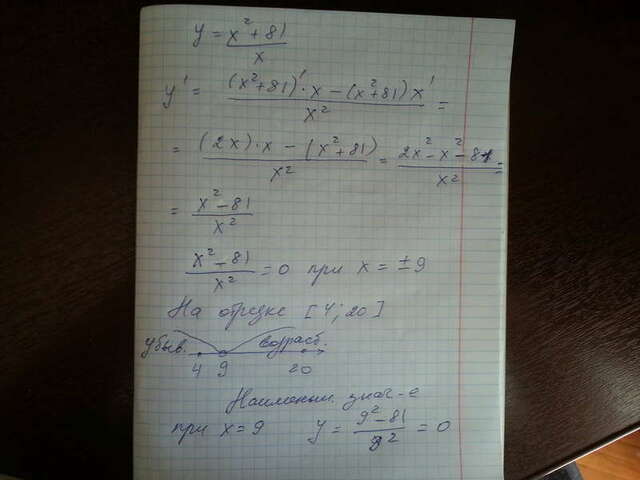 y = x² + 81 / x
y' = (x²+81)' · x − (x²+81) x' / x² =
= (2x) · x − (x²+81) / x² = 2x² − x² − 81 / x² =
= x² − 81 / x²
x² − 81 / x² = 0 при x = ± 9
На отрезке [4; 20]
убыв. возраст.
4 9 20
Наименьш. знач-е
при x = 9 y = 9² − 81 / 9² = 0